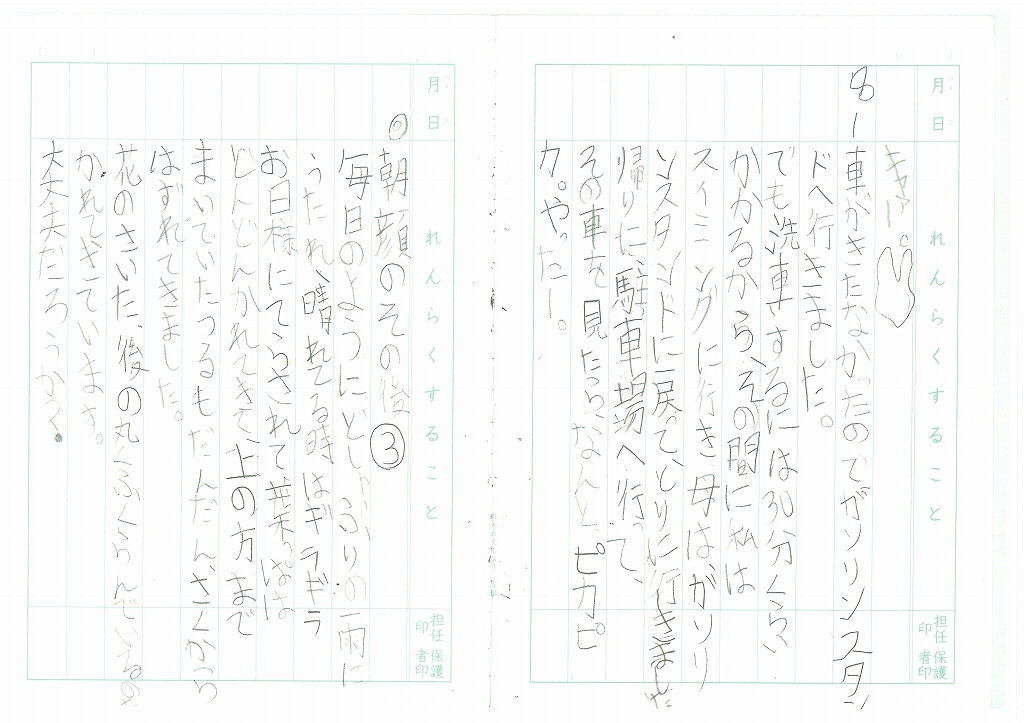 月 日
れんらくすること
担任印 保護者印
キャアー。
8ー車がきたなかったのでガソリンスタン
ドへ行きました。
でも洗車するには30分くらい
かかるから、その間に私は
スイミングに行き、母はガソリ
ンスタンドに戻って、とりに行きました
帰りに、駐車場へ行って、
その車を見たら、なんと、ピカピ
カ。やったー。
月 日
れんらくすること
担任印 保護者印
◎朝顔のその後③
毎日のようにどしゃぶりの雨に
うたれ、晴れてる時はギラギラ
お日様にてらされて、葉っぱは
どんどんかれてきて、上の方まで
まいていたつるもだんだん、さくから
はずれてきました。
花のさいた、後の丸くふくらんでいるのも
かれてきています。
大丈夫だろうか?